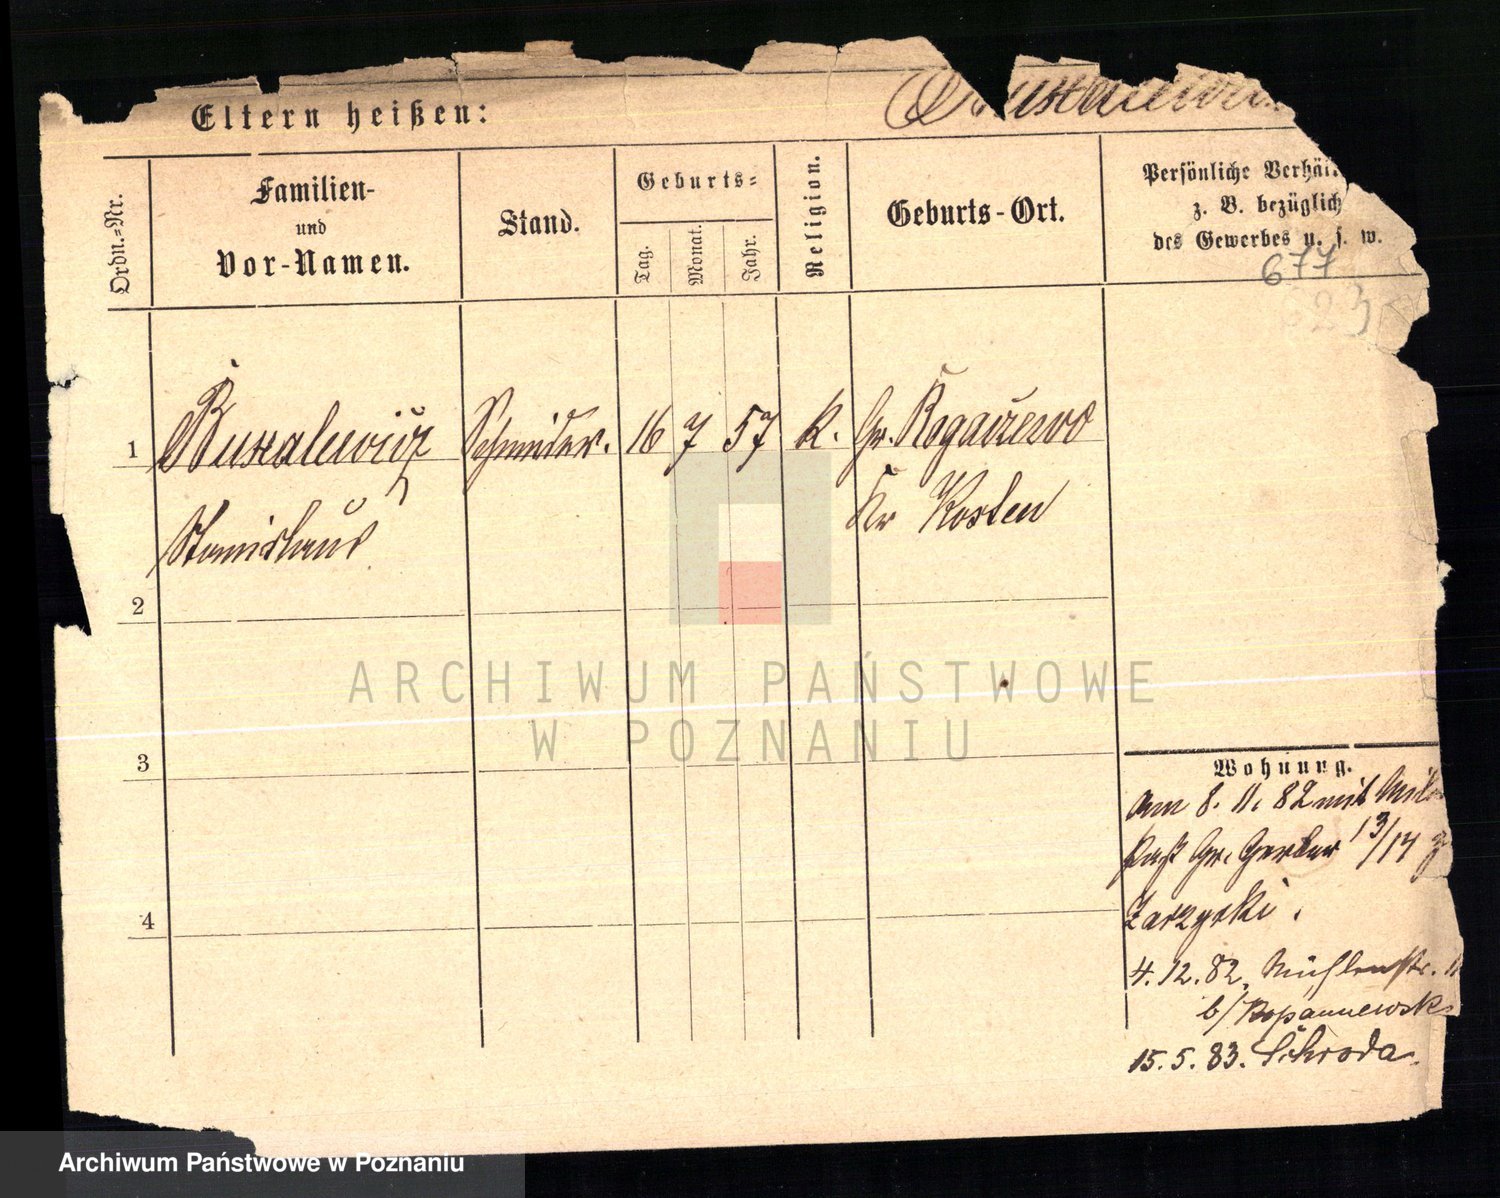 Eltern heißen:
Ordn.=Nr.
Familien-
und
Vor-Namen.
Stand.
Geburts=
Tag.
Monat.
Jahr.
Religion.
Geburts-Ort.
Persönliche
z. B. bezüglich
des Gewerbes u. s. w.
677
23
1 Schneider. 16 7 57 K. Gr.
Stanislaus Kr Kosten
2
3
4
Wohnung.
am 8. 11. 82 mit
Gr. Gerber 13/14
Zarzycki.
4.12.82. Mühlenstr.
b/
15.5.83. Schroda.
ARCHIWUM PAŃSTWOWE
W POZNANIU
Archiwum Państwowe w Poznaniu